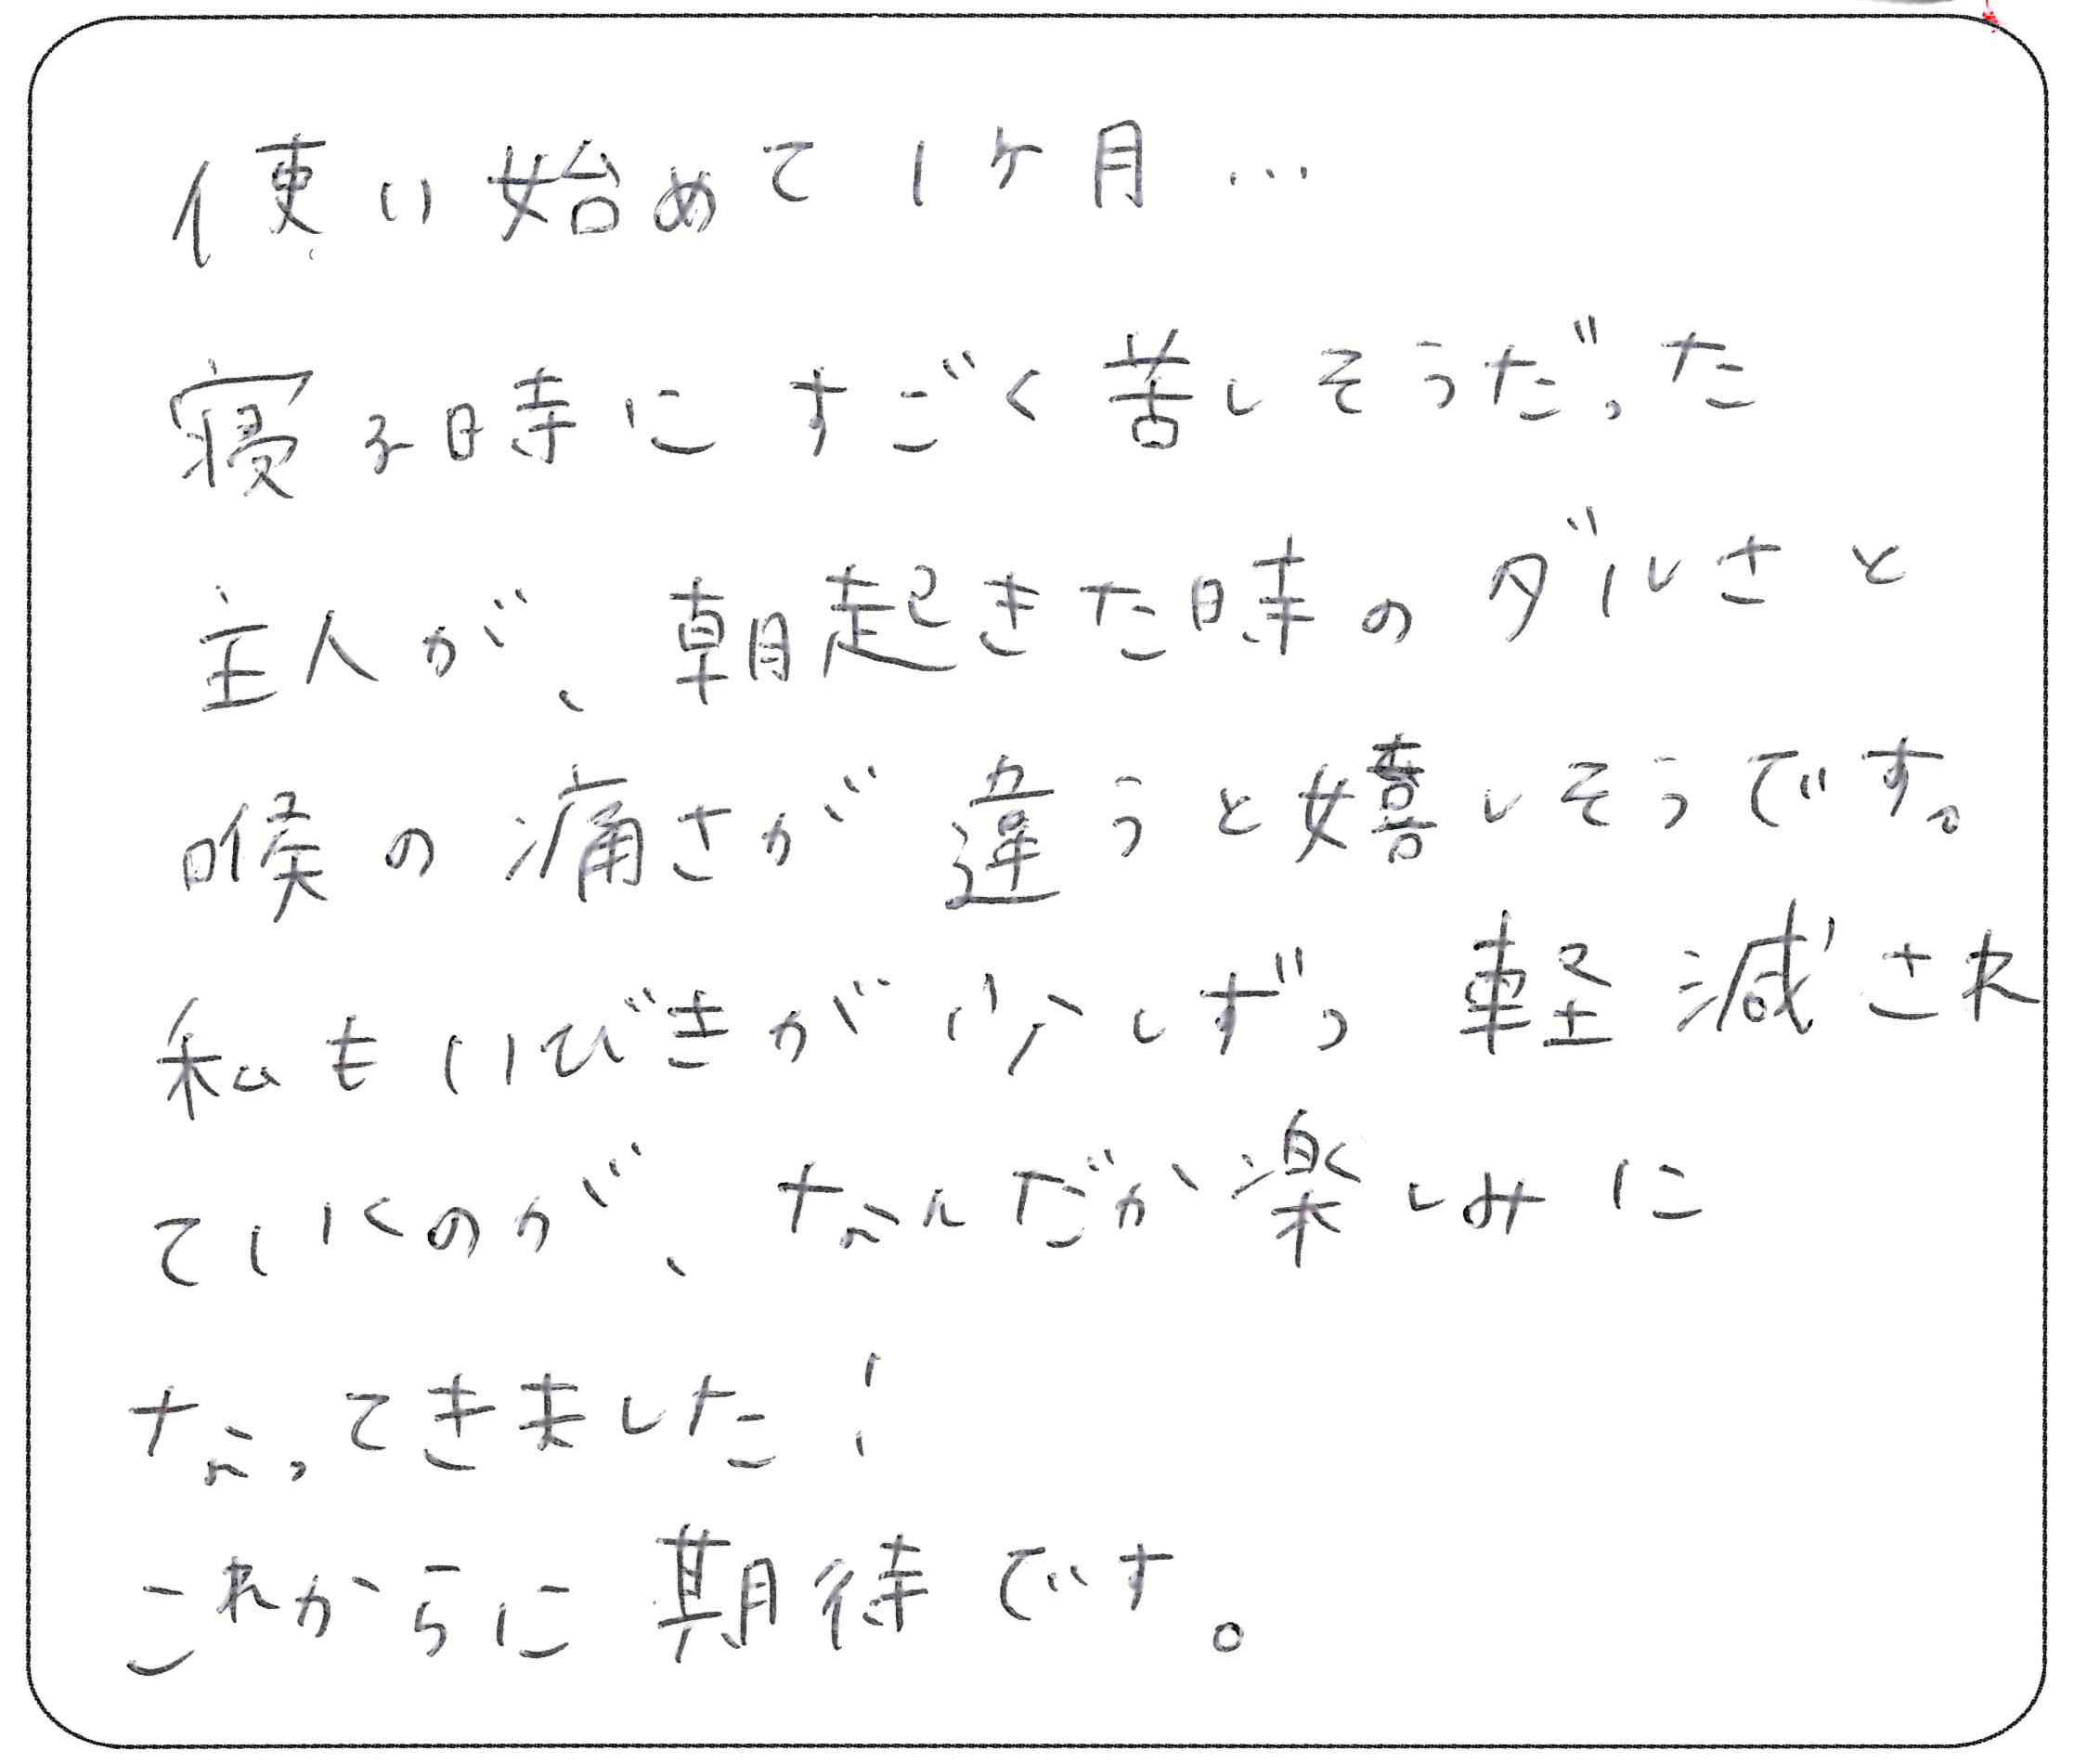 使い始めて1ヶ月…
寝る時にすごく苦しそうだった
主人が、朝起きた時のダルさと
喉の痛さが違うと嬉しそうです。
私もいびきが少しずつ軽減され
ていくのが、なんだか楽しみに
なってきました!
これからに期待です。